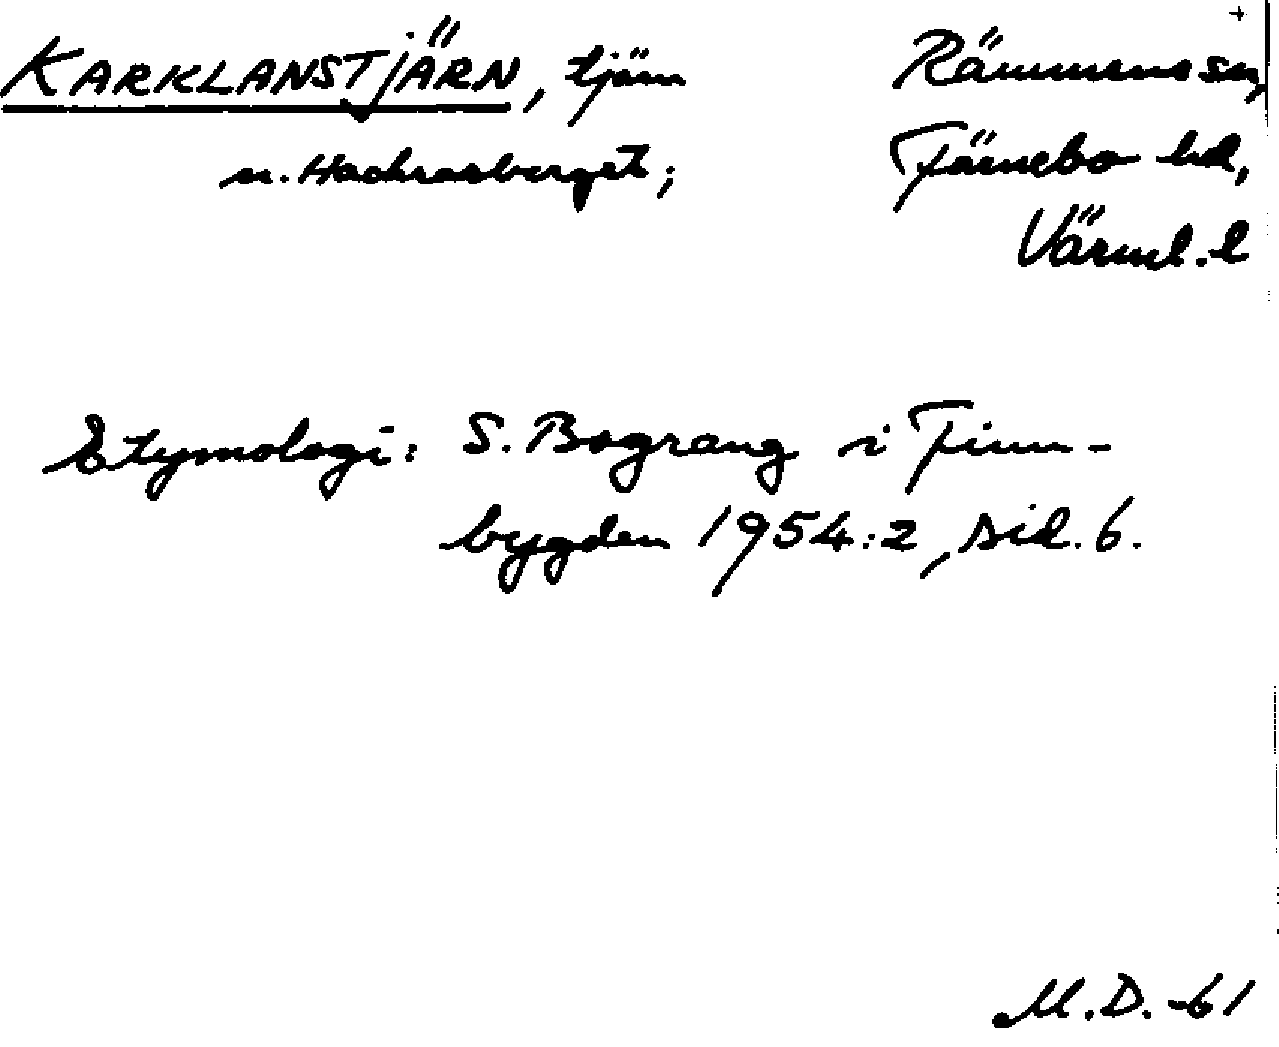 KARKLANSTJÄRN, tjärn
n. Hackrasberget;
Rämmens sn,
Färnebo hd,
Värml. l
Etymologi: S. Bograng i Finn-
bygden 1954:2, sid. 6.
M.D. -61